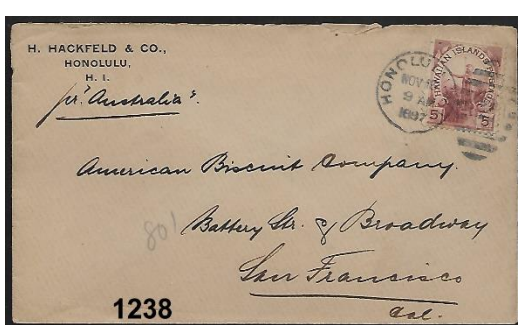 H. HACKFELD & CO.,
HONOLULU,
H. I.
pr "Australia".
HONOLULU
NOV
9 AM
1897
HAWAIIAN ISLANDS
5 5
American Biscuit Company.
Battery Str. & Broadway
San Francisco
Cal.
801
1238